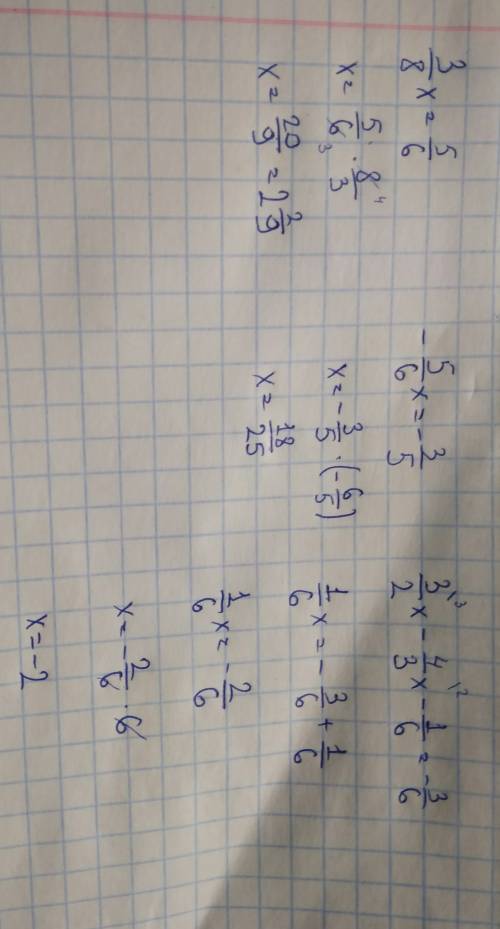 3/8 x = 5/6
x = 5/6 3 · 8 4/3
x = 20/9 = 2 2/9
- 5/6 x = - 3/5
x = - 3/5 · (- 6/5)
x = 18/25
3/2 \3 x - 4/3 \2 x - 1/6 = - 3/6
1/6 x = - 3/6 + 1/6
1/6 x = - 2/6
x = - 2/6 · 6
x = - 2